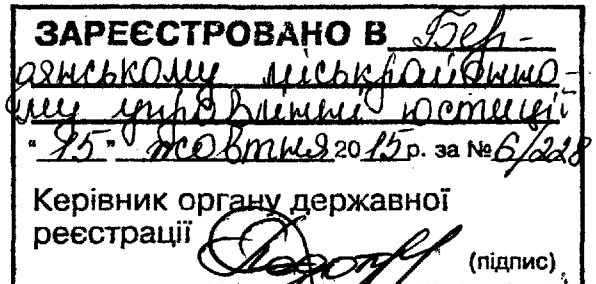 ЗАРЕЄСТРОВАНО В Бер-
дянському міськрайонно-
му управлінні юстиції
"15" жовтня 2015 р. за № 6/228
Керівник органу державної
реєстрації
(підпис)